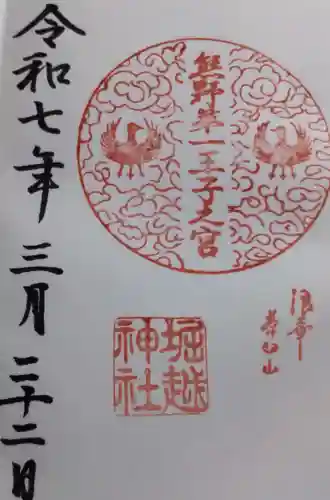 熊野第一王子之宮
浪華
茶臼山
堀越
神社
令和七年三月二十二日